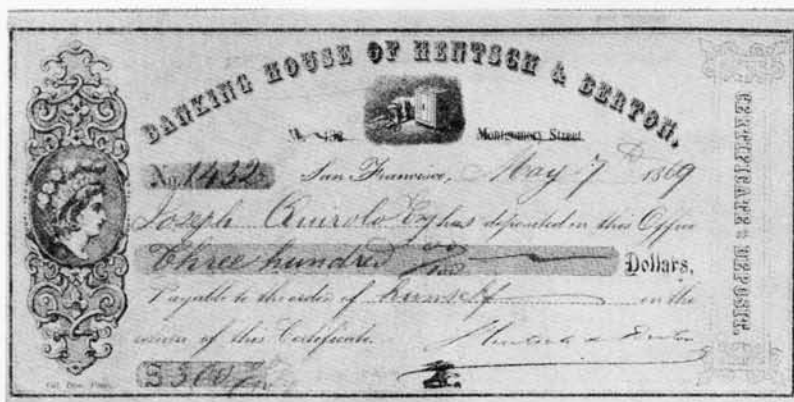 BANKING HOUSE OF HENTSCH & BERTON,
Montgomery Street
No. 1432 San Francisco, May 7th 1869
Joseph Quirolo Esq has deposited in this Office
Three hundred 00/100 Dollars,
Payable to the order of himself on the
return of this Certificate. Hentsch & Berton
$300/
CERTIFICATE OF DEPOSIT.